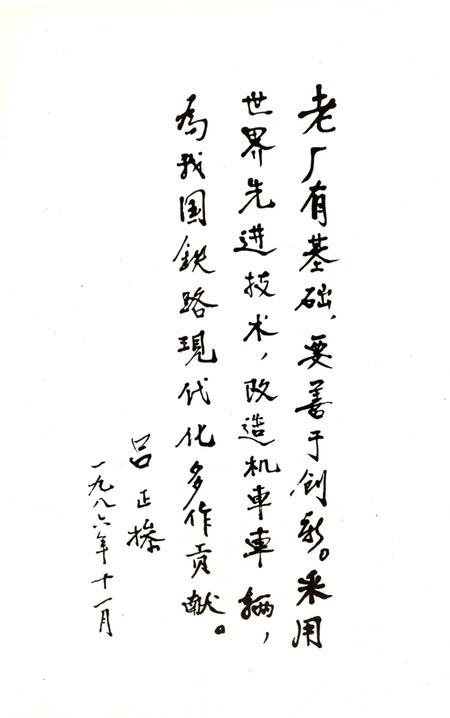 老厂有基础，要善于创新。采用
世界先进技术，改造机車車辆，
為我国鉄路現代化多作贡献。
吕正操
一九八六年十一月